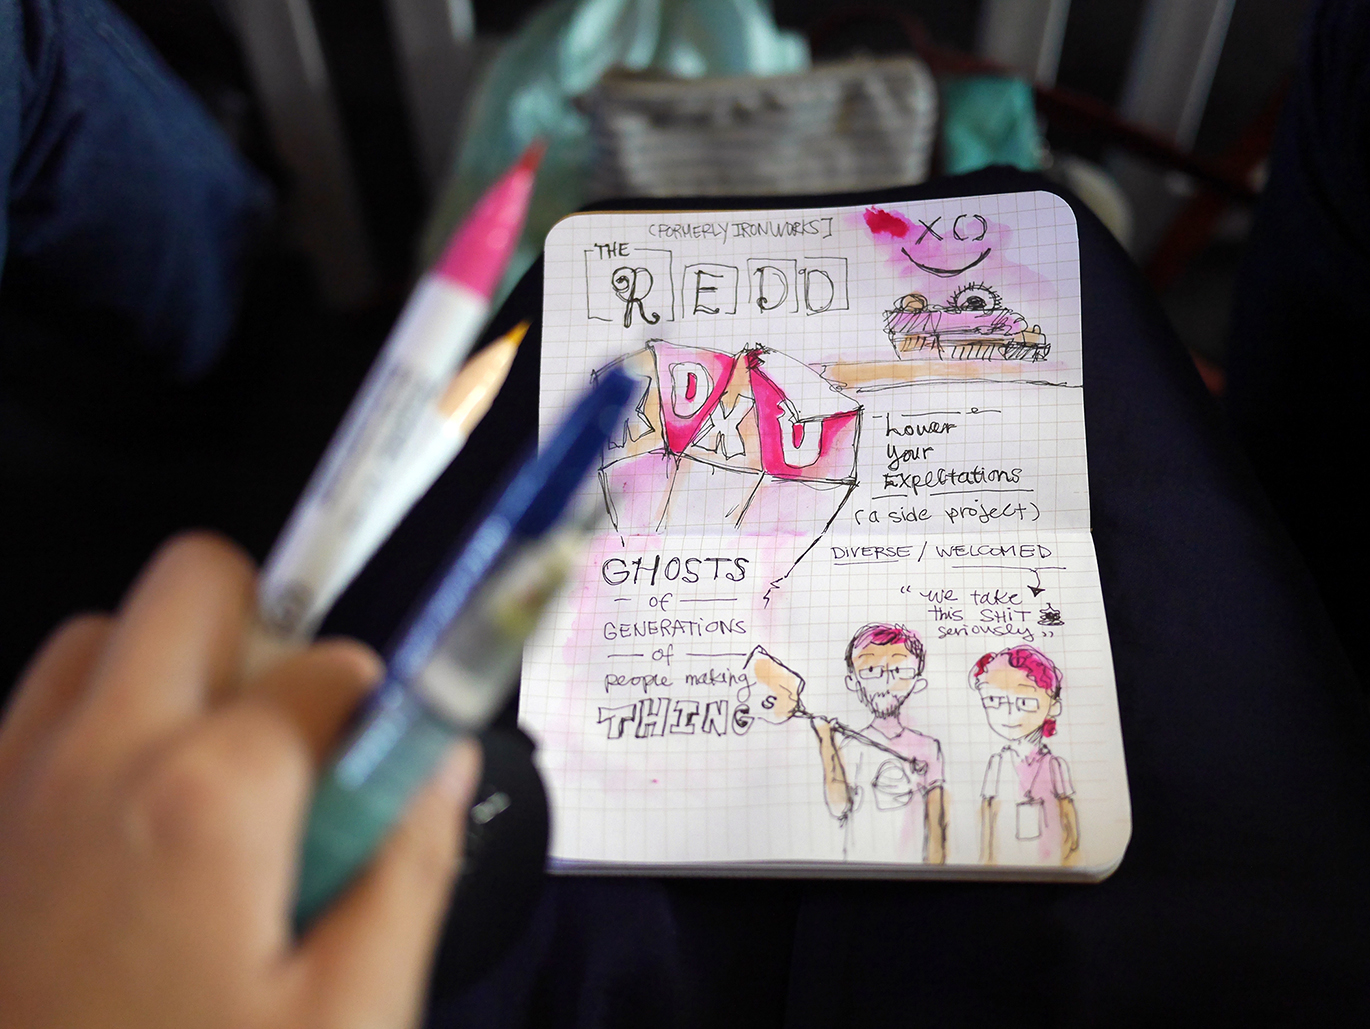 (FORMERLY IRONWORKS]
THE
REDD
XO
DXU
Lower
your
Expectations
(a side project)
GHOSTS
of
GENERATIONS
of
people making
THINGS
DIVERSE / WELCOMED
"we take
this SHIT
seriously"